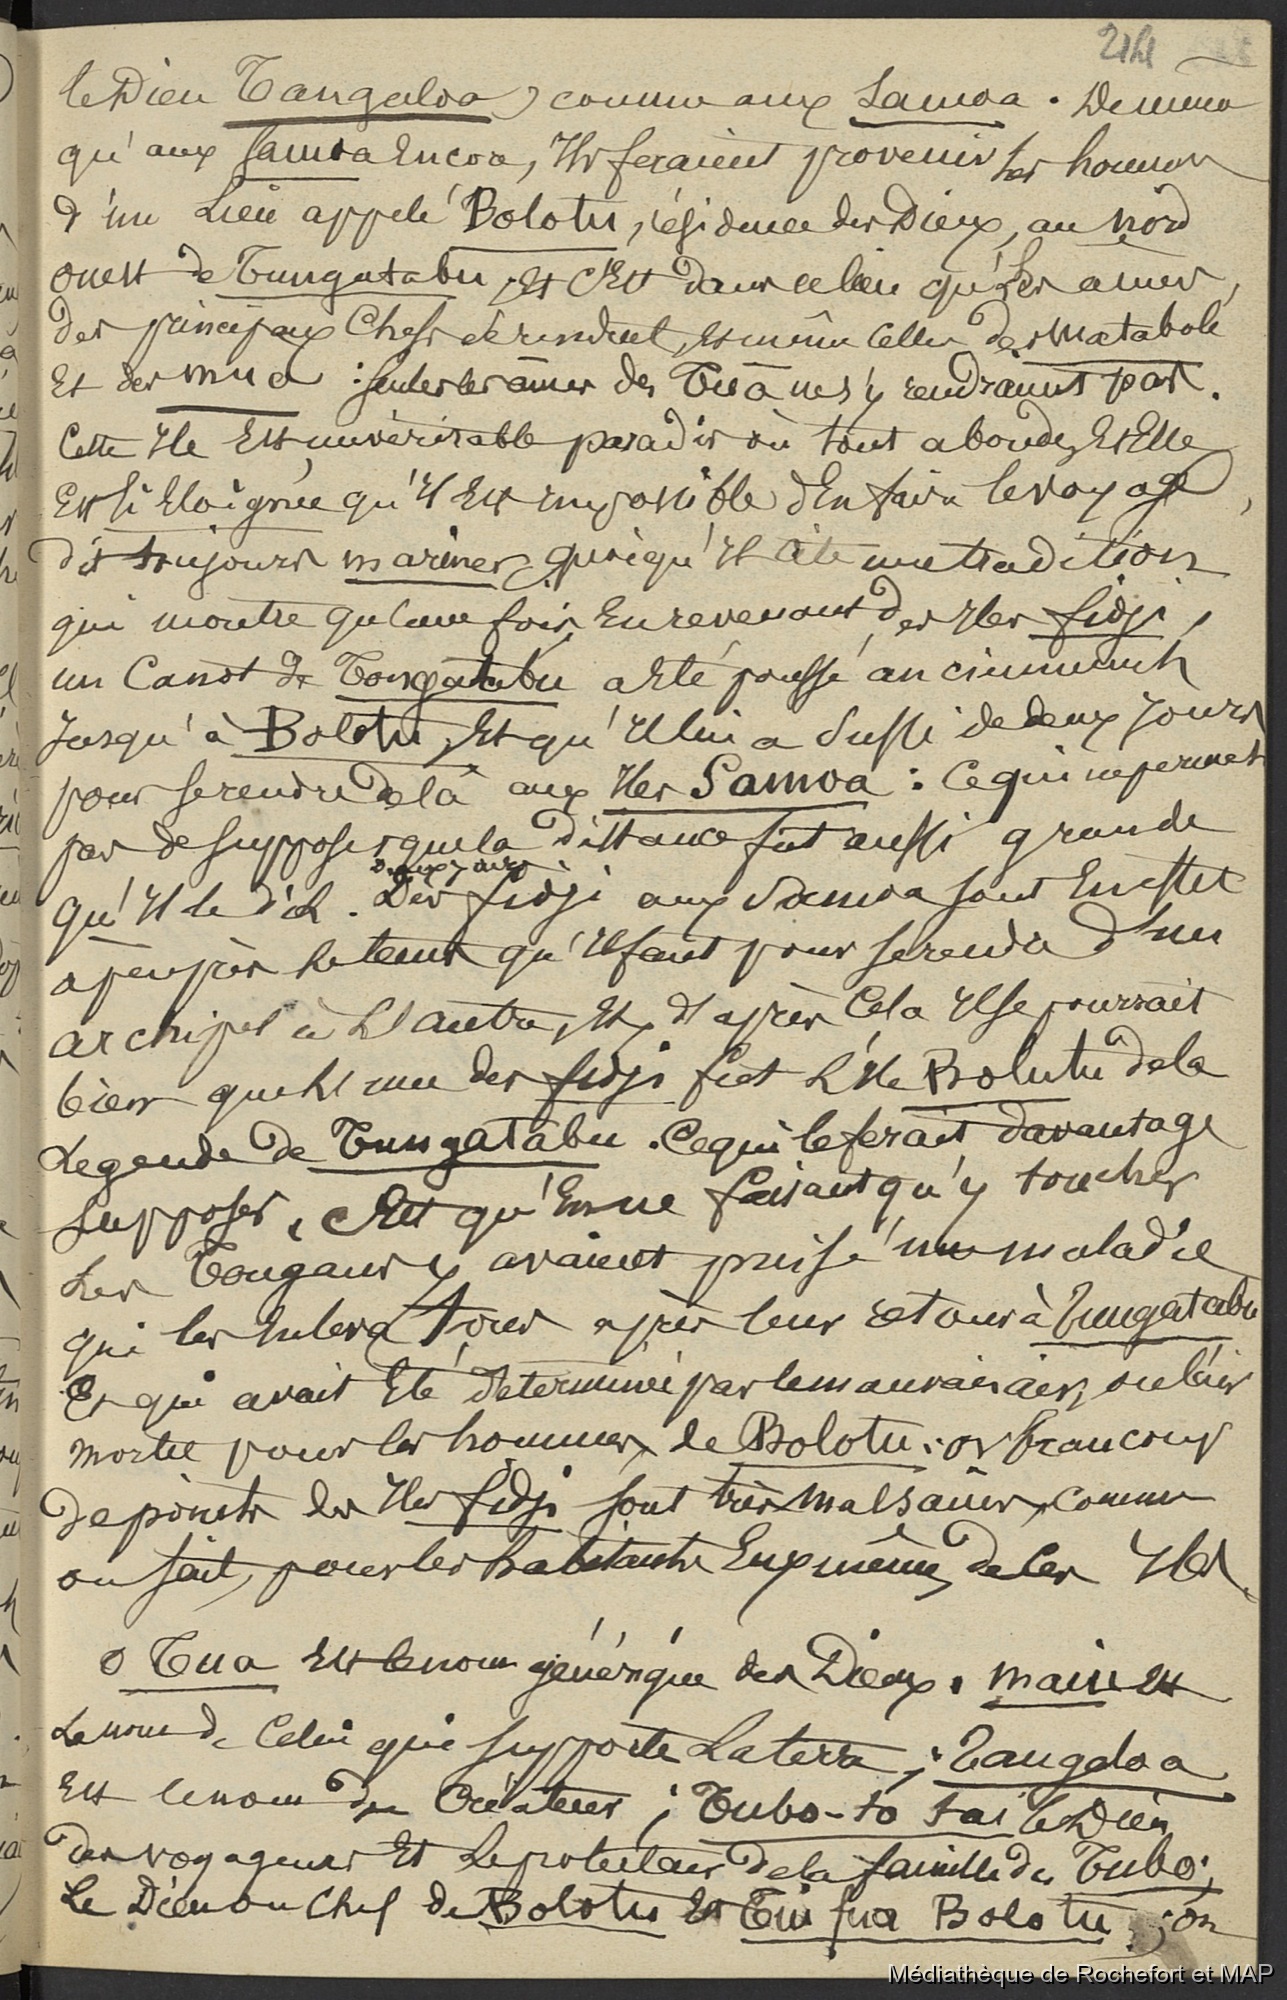 le Dieu Tangaloa, comme aux Samoa. De meme
qu'aux Samoa Encore, Ils feraient provenir les hommes
d'un Lieu appelé Bolotu, résidence des Dieux, au nord
ouest de Tungatabu, et c'Est dans ce lieu qu'Les âmes
des principaux Chefs se rendent, et même Celles des Matabolé
Et des Mua : seules les âmes des Tuâ ne s'y rendraient pas.
Cette Ile Est un véritable paradis où tout abonde, Et Elle
Est si Eloignée qu'Il Est impossible d'En faire le voyage,
dit toujours Mariner, quoiqu'Il cite une tradition
qui montre qu'une fois, En revenant des Iles fidji,
un Canot de Tongatabu a Eté poussé anciennement
Jusqu'à Bolotu, Et qu'Il lui a suffi de deux Jours
pour se rendre de là aux Iles Samoa : Ce qui ne permet
pas de supposer que la distance fut aussi grande
qu'Il le dit. Deux jours
Des fidji aux Samoa sont En effet
a peu près le tems qu'Il faut pour se rendre d'un
archipel à L'autre, Et, d'après Cela Il se pourrait
bien que L'une des fidji fut L'Ile Bolutu de la
Légende de Tungatabu. Ce qui le ferait davantage
supposer, c'Est qu'En ne faisant qu'y toucher
Les Tongans y avaient puisé une maladie
qui les Enleva Tous après leur retour à Tungatabu
Et qui avait Eté déterminée par le mauvais air, ou l'air
mortel pour les hommes, de Bolotu : or beaucoup
de points des Iles fidji sont très malsains, comme
on sait, pour les habitants Eux même, de Ces Iles.
O Tua Est le nom générique des Dieux. Maui Est
Le nom de Celui qui supporte La terre ; Tangaloa
Est le nom du Créateur ; Tubo-to tai le Dieu
des voyageurs Et Le protecteur de la famille des Tubo ;
Le Dieu ou Chef de Bolotu Est Tui fua Bolotu ; on
Médiathèque de Rochefort et MAP